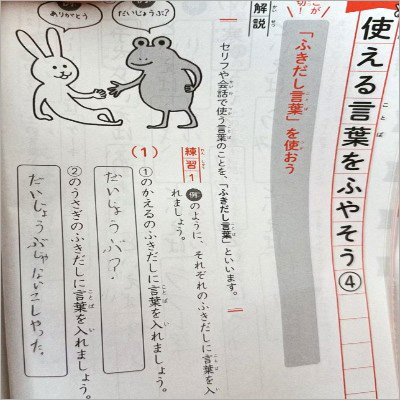 使える言葉をふやそう④
「ふきだし言葉」を使おう
解説
セリフや会話で使う言葉のことを、「ふきだし言葉」といいます。
練習1
例のように、それぞれのふきだしに言葉を入
れましょう。
(1)
①のかえるのふきだしに言葉を入れましょう。
だいじょうぶ？
②のうさぎのふきだしに言葉を入れましょう。
だいじょうぶじゃないこしやった。
だいじょうぶ？
ありがとう